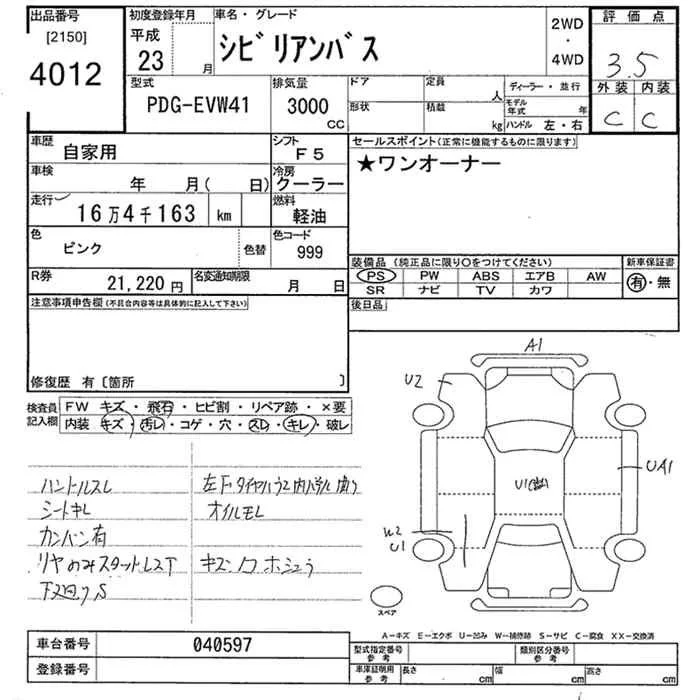 出品番号
[2150]
4012
初度登録年月
平成
23
月
車名・グレード
シビリアンバス
2WD
・
4WD
評価点
3.5
外装 内装
C C
型式
PDG-EVW41
排気量
3000
CC
ドア
定員
人
形状
積載
kg
ディーラー・並行
モデル年式 年
ハンドル 左・右
車歴
自家用
シフト
F5
セールスポイント(正常に機能するものに限ります)
★ワンオーナー
車検
年 月( 日)
冷房
クーラー
走行
16万4千163 km
燃料
軽油
色
ピンク
色替
色コード
999
装備品 (純正品に限り○をつけてください)
PS PW ABS エアB AW
SR ナビ TV カワ
新車保証書
有・無
R券
21,220円
名変通知期限
月 日
後日品
注意事項申告欄(不具合内容等は具体的に記入して下さい)
修復歴 有〔箇所 〕
検査員
記入欄
FW キズ・飛石・ヒビ割・リペア跡・×要
内装 キズ・汚レ・コゲ・穴・スレ・キレ・破レ
ハンドルスレ
シートキレ
カンバン有
リヤのみスタットレスT
下廻りS
オイルモレ
キズ
A1
U2
UA1
U1
W2
U1
スペア
A－キズ E－エクボ U－凹み W－補修跡 S－サビ C－腐食 XX－交換済
車台番号
040597
登録番号
型式指定番号
参考
類別区分番号
参考
車庫証明用
参考
長さ
cm
幅
cm
高さ
cm